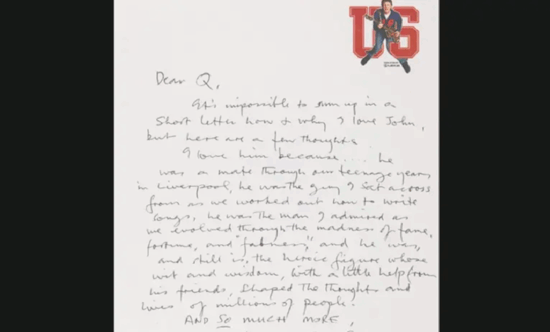 US
Dear Q,
It's impossible to sum up in a
short letter how & why I love John,
but here are a few thoughts
I love him because.... he
was a mate through our teenage years
in Liverpool, he was the guy I sat across
from as we worked out how to write
songs, he was the man I admired as
we evolved through the madness of fame,
fortune, and "fabness", and he was,
and still is, the heroic figure whose
wit and wisdom, with a little help from
his friends, shaped the thoughts and
lives of millions of people.
AND SO MUCH MORE,